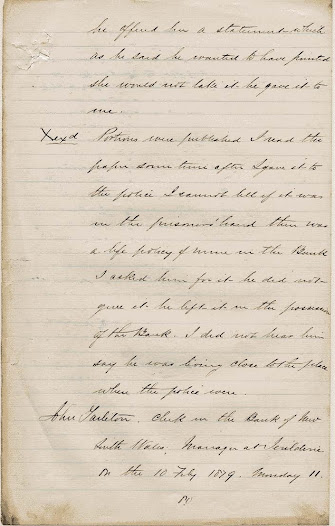 he offered her a statement which
as he said he wanted to have printed
she would not take it he gave it to
me.
Xexd Portions were published I read the
paper some time after I gave it to
the police I cannot tell if it was
in the prisoners hand there was
a life policy of mine in the Bank
I asked him for it he did not
give it he left it in the possession
of the Bank. I did not hear him
say he was going close to the place
where the police were.
John Tarleton. Clerk in the Bank of New
South Wales, Manager at Jerilderie
on the 10 Feby 1879. Monday 11.